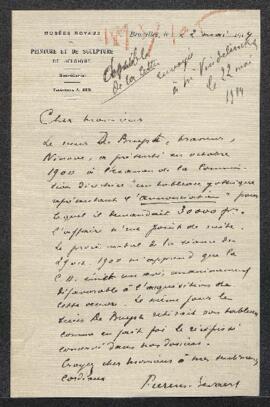 MUSÉES ROYAUX
DE
PEINTURE ET DE SCULPTURE
DE BELGIQUE
Secrétariat
Bruxelles, le 22 mai 1914
Copie de la lettre
envoyée
à Mr
le 22 mai
1914
Cher monsieur
Le sieur De Bruyck,
Ninove, a présenté en octobre
1900 à l'examen de la Commis-
sion directrice un tableau gothique
représentant l'"annonciation" pour
lequel il demandait 30000 frs.
L'affaire n'eut point de suite.
Le procès verbal de la séance du
29 oct. 1900 m'apprend que la
C.D. émit un avis unanimement
défavorable à l'acquisition de
cette œuvre. Le même jour le
sieur De Bruyck retirait son tableau
comme en fait foi le récépissé
conservé dans nos dossiers.
Croyez cher monsieur à mes sentiments
cordiaux